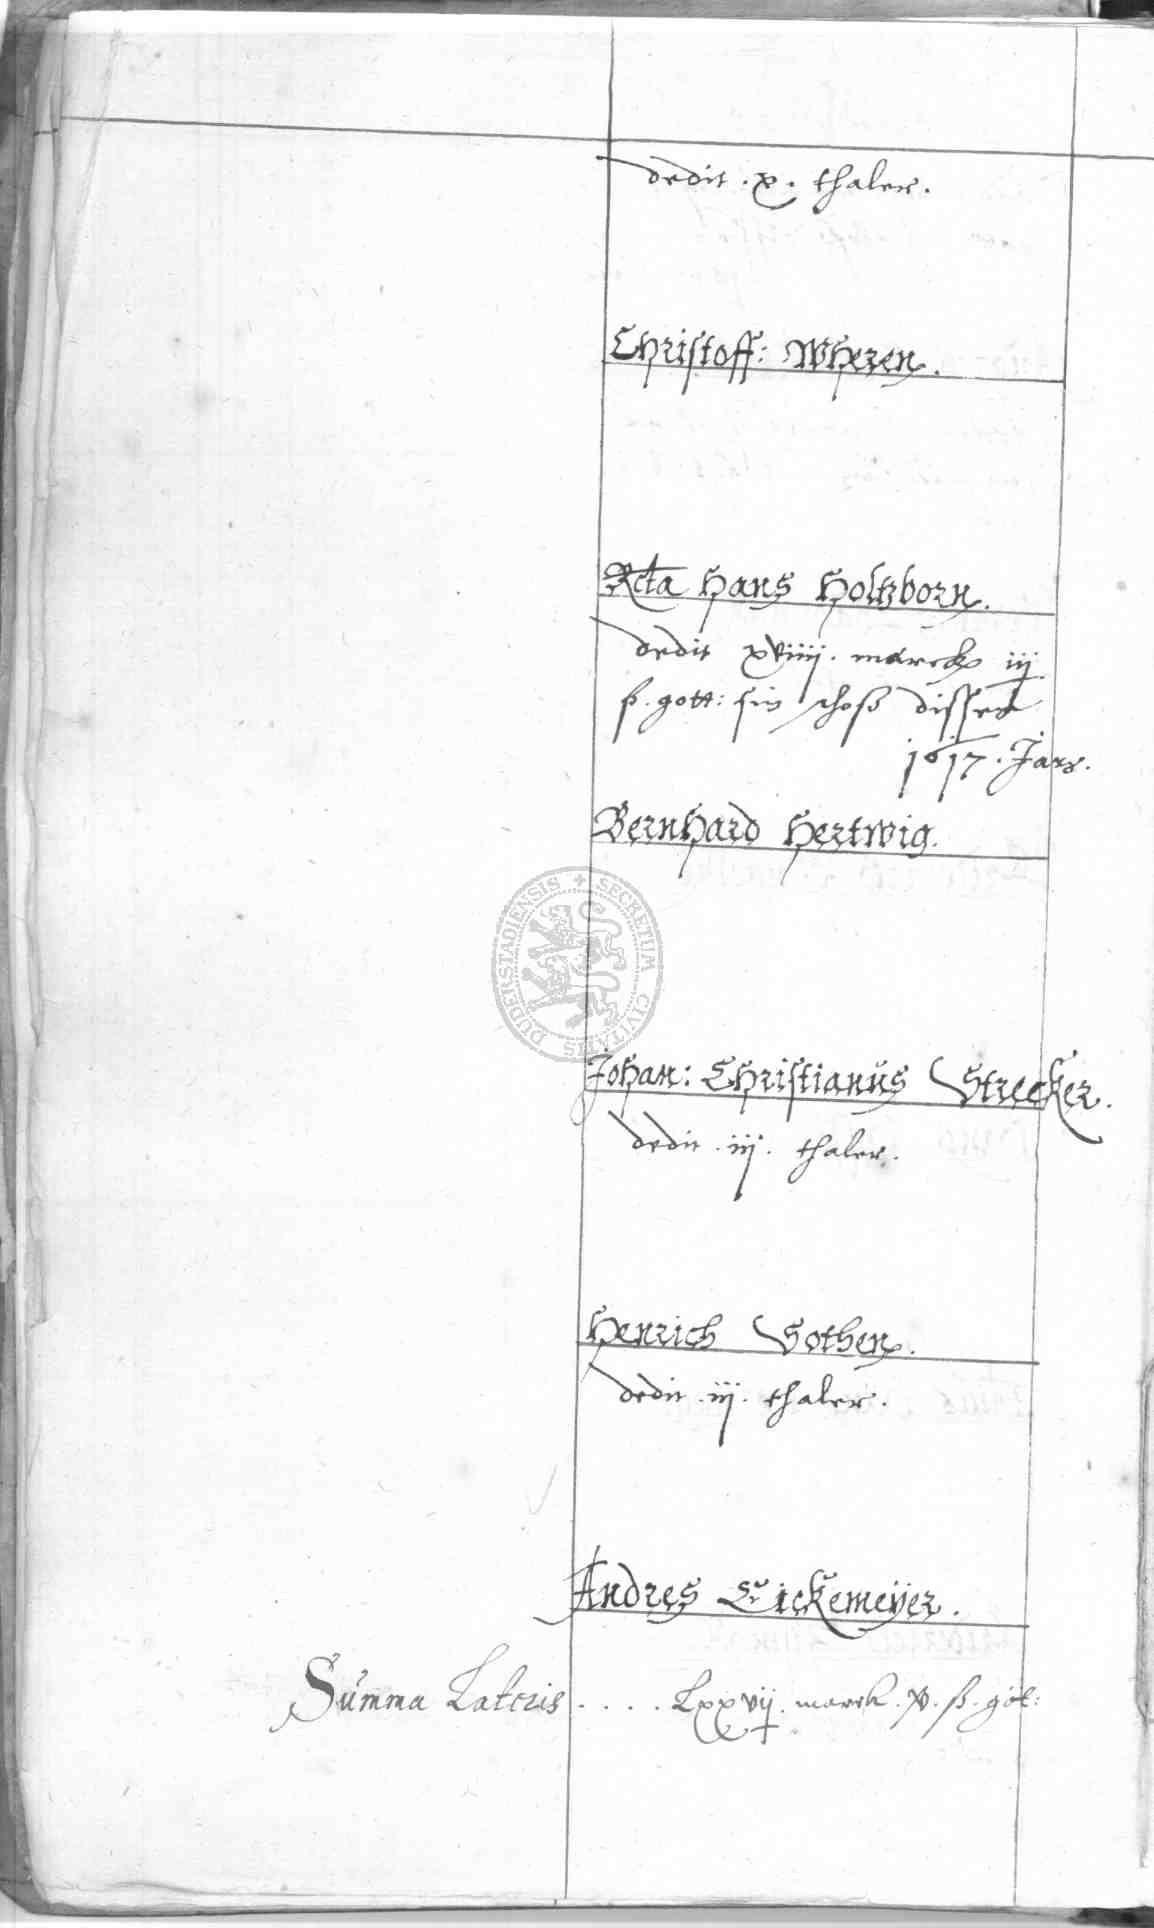 dedit . x . thaler .
Christoff : Wheren .
Rcta Hans Holtzborn .
dedit xviiij . marck iij
ß . gott : sin schoß disses
1617 . Jars .
Bernhard Hertwig .
DUDERSTADIENSIS + SECRETUM CIVITATIS
Johan : Christianus Strecker .
dedit . iij . thaler .
Henrich Sothen .
dedit . iij . thaler .
Andres Eickemeÿer .
Summa Lateris . . . . Lxxvij . marck . ß . got :